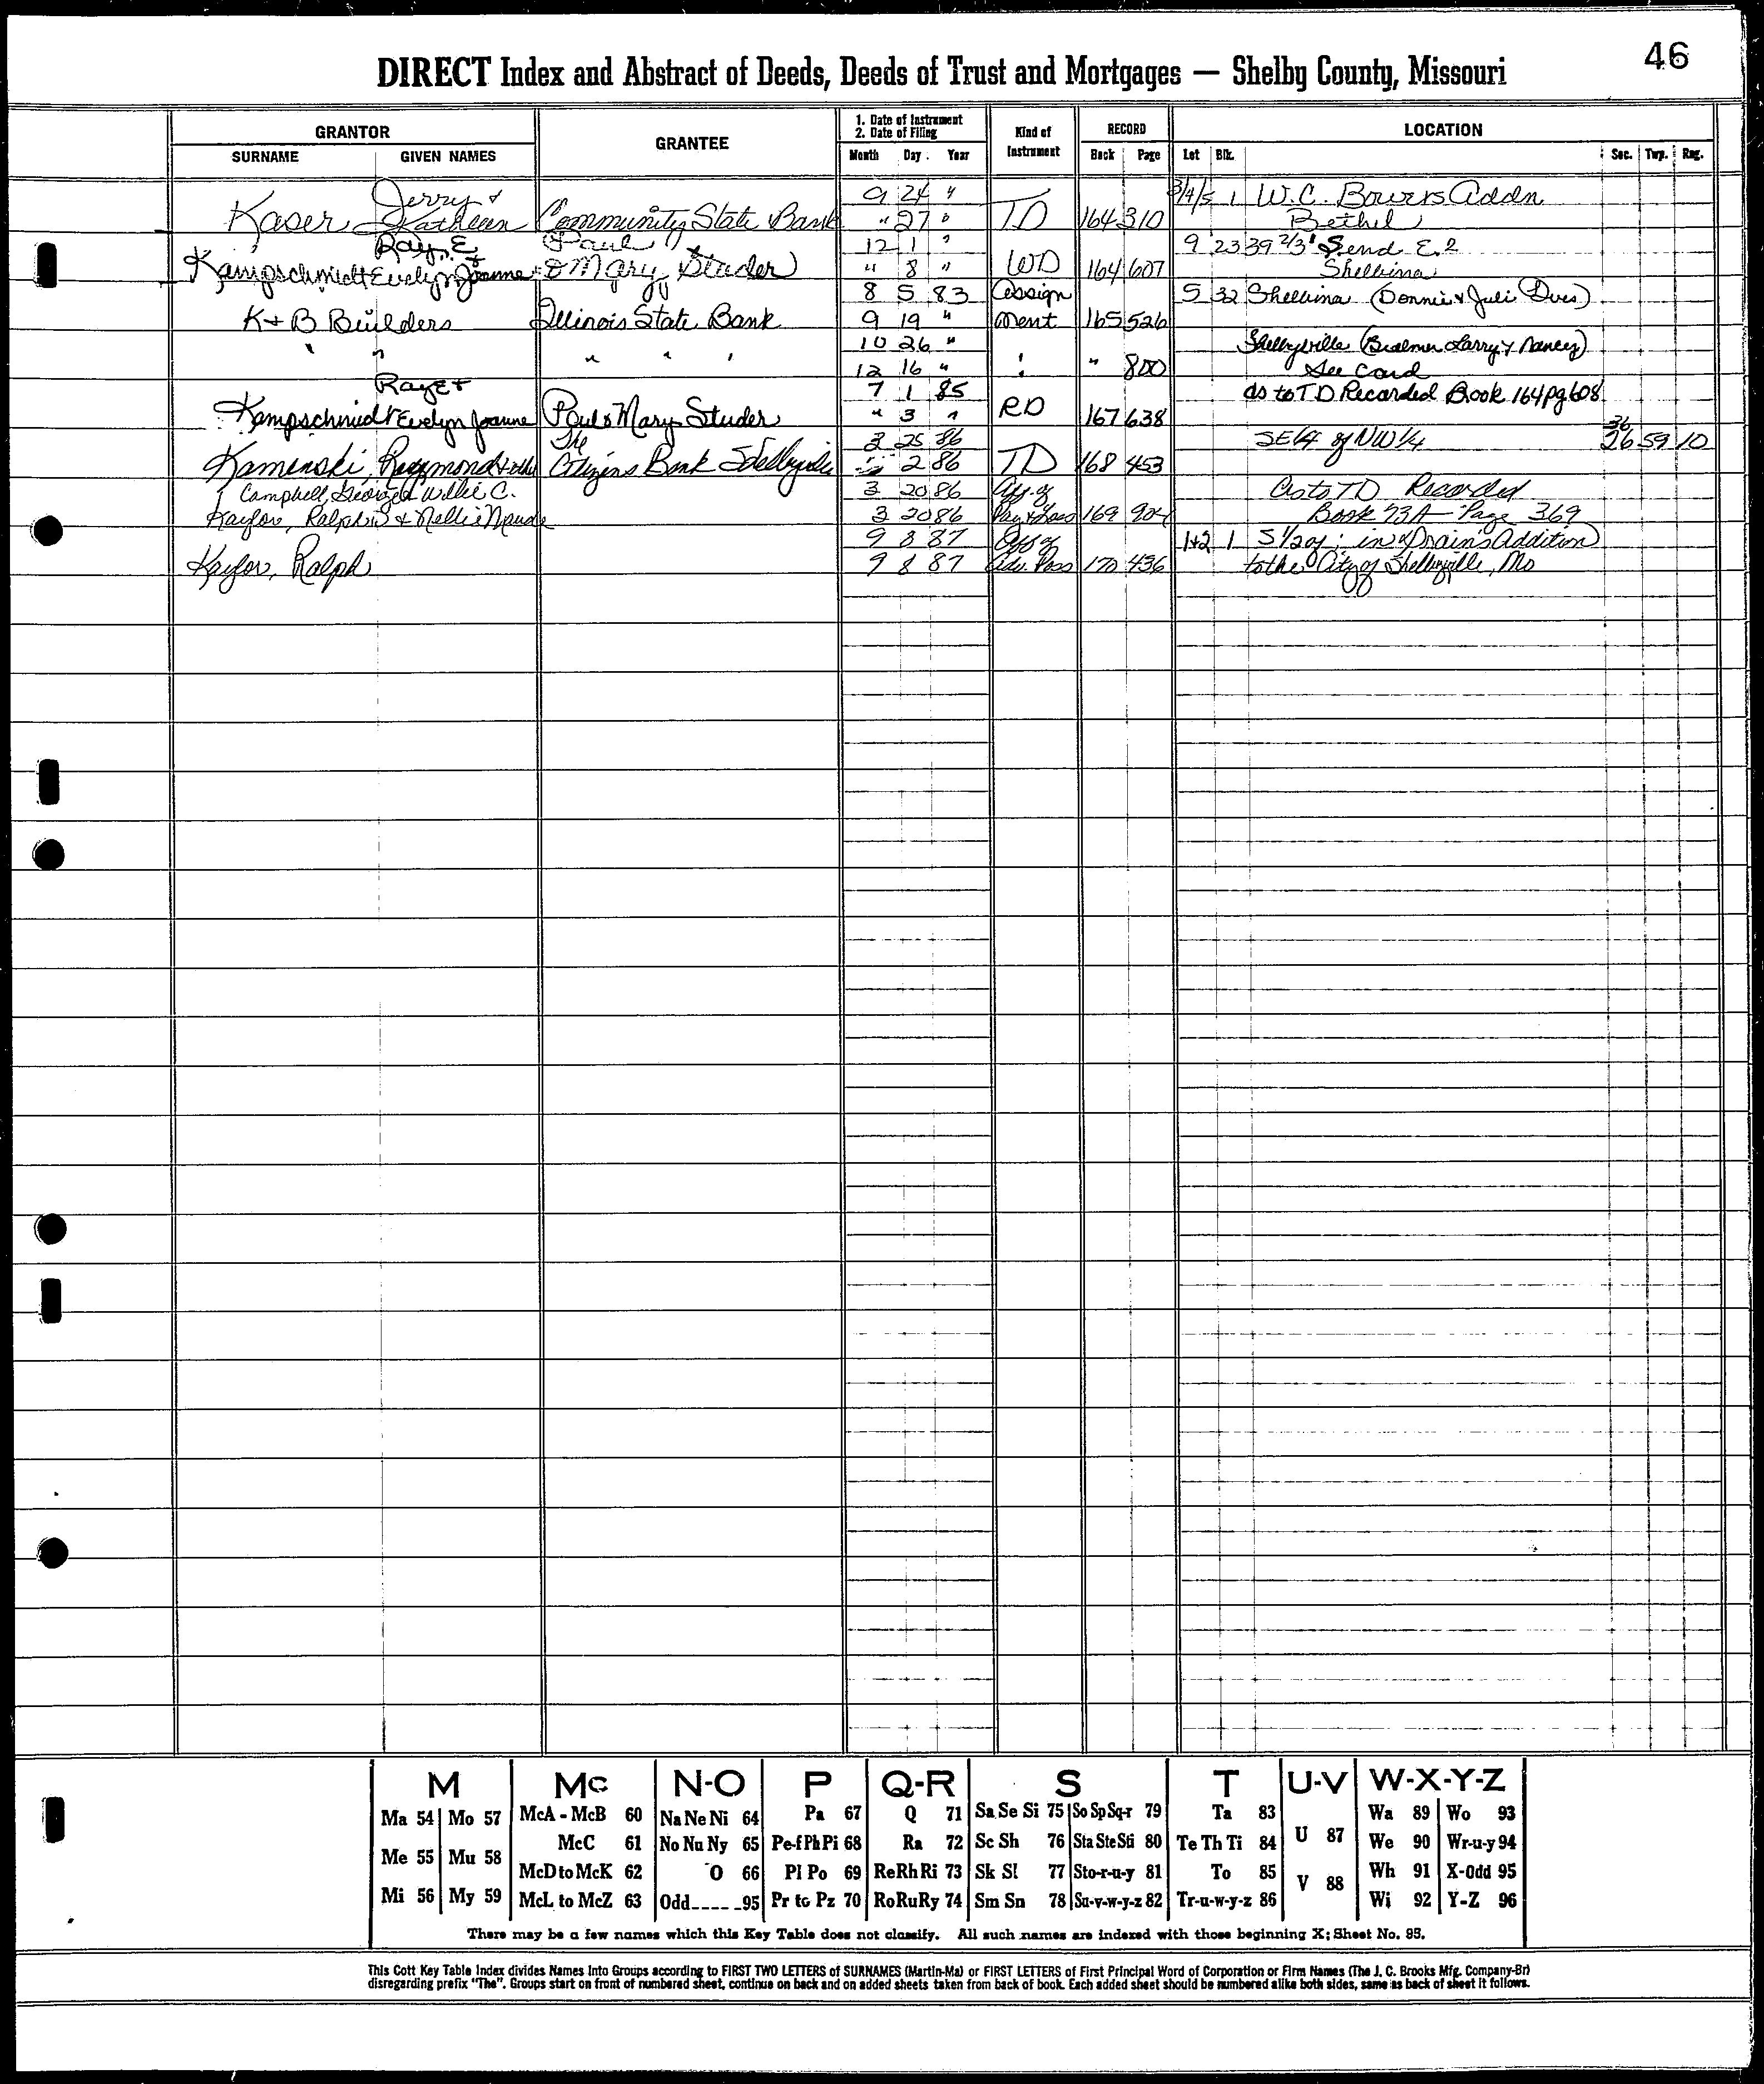 46
DIRECT Index and Abstract of Deeds, Deeds of Trust and Mortgages — Shelby County, Missouri
GRANTOR GRANTEE 1. Date of Instrument 2. Date of Filing Kind of Instrument RECORD LOCATION
SURNAME GIVEN NAMES Month Day Year Book Page Lot Blk. Sec. Twp. Rng.
Jerry & 9 24 " 3/4/5 1 W.C. Bowers Addn
Kaser Kathleen Community State Bank " 27 " TD 164 310 Bethel
Ray E. & Paul 12 1 " 9 23 39 2/3' S end E.2
Kampschmidt Evelyn Joanne & Mary Studer " 8 " WD 164 607 Shelbina
8 5 83 Assign 5 32 Shelbina (Donnie & Juli Dues)
K & B Builders Illinois State Bank 9 19 " ment 165 526
10 26 " Shelbyville (Larry & Nancy)
" " " " " 12 16 " " " 800 See Card
Ray E & 7 1 85 as to TD Recorded Book 164 pg 608
Kampschmidt Evelyn Joanne Paul & Mary Studer " 3 " RD 167 638
The 3 25 86 SE1/4 of NW1/4 36 26 59 10
Kaminski, Raymond & other Citizens Bank Shelbyville 2 86 TD 168 453
Campbell, George & Willie C. 3 20 86 Aff. of As to TD Recorded
Kaylor, Ralph & Nellie Maude 3 20 86 Pay & Loss 169 904 Book 73A Page 369
9 8 87 Aff of 1+2 1 S1/2 of; in Drain's Addition
Kaylor, Ralph 9 8 87 Adv. Poss 170 436 to the City of Shelbyville, Mo
M Mc N-O P Q-R S T U-V W-X-Y-Z
Ma 54 Mo 57 McA - McB 60 Na Ne Ni 64 Pa 67 Q 71 Sa Se Si 75 So Sp Sq-r 79 Ta 83 Wa 89 Wo 93
McC 61 No Nu Ny 65 Pe-f Ph Pi 68 Ra 72 Sc Sh 76 Sta Ste Sti 80 Te Th Ti 84 U 87 We 90 Wr-u-y 94
Me 55 Mu 58 McD to McK 62 O 66 Pl Po 69 Re Rh Ri 73 Sk Sl 77 Sto-r-u-y 81 To 85 V 88 Wh 91 X-Odd 95
Mi 56 My 59 McL to McZ 63 Odd_____95 Pr to Pz 70 Ro Ru Ry 74 Sm Sn 78 Su-v-w-y-z 82 Tr-u-w-y-z 86 Wi 92 Y-Z 96
There may be a few names which this Key Table does not classify. All such names are indexed with those beginning X; Sheet No. 95.
This Cott Key Table Index divides Names Into Groups according to FIRST TWO LETTERS of SURNAMES (Martin-Ma) or FIRST LETTERS of First Principal Word of Corporation or Firm Names (The J. C. Brooks Mfg. Company-Br)
disregarding prefix "The". Groups start on front of numbered sheet, continue on back and on added sheets taken from back of book. Each added sheet should be numbered alike both sides, same as back of sheet it follows.